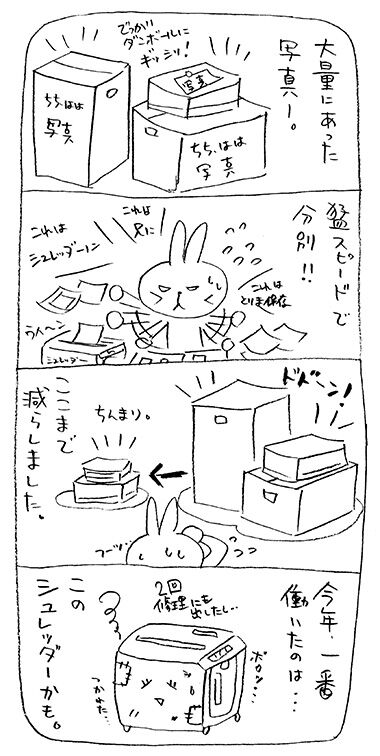 大量にあった
写真ー。
でっかい
ダンボールに
ギッシリ!
写真
ちち、はは
写真
ちち、はは
写真
猛スピードで
分別!!
これは
兄に
これは
シュレッダーノン
これは
とりま保存
ういーン
シュレッダー
ドドーン!
ちんまり。
ここまで
減らしました。
フーッ
今年、一番
働いたのは…
2回
修理にも
出したし…
ボロッ…
つかれた…
この
シュレッダーかも。